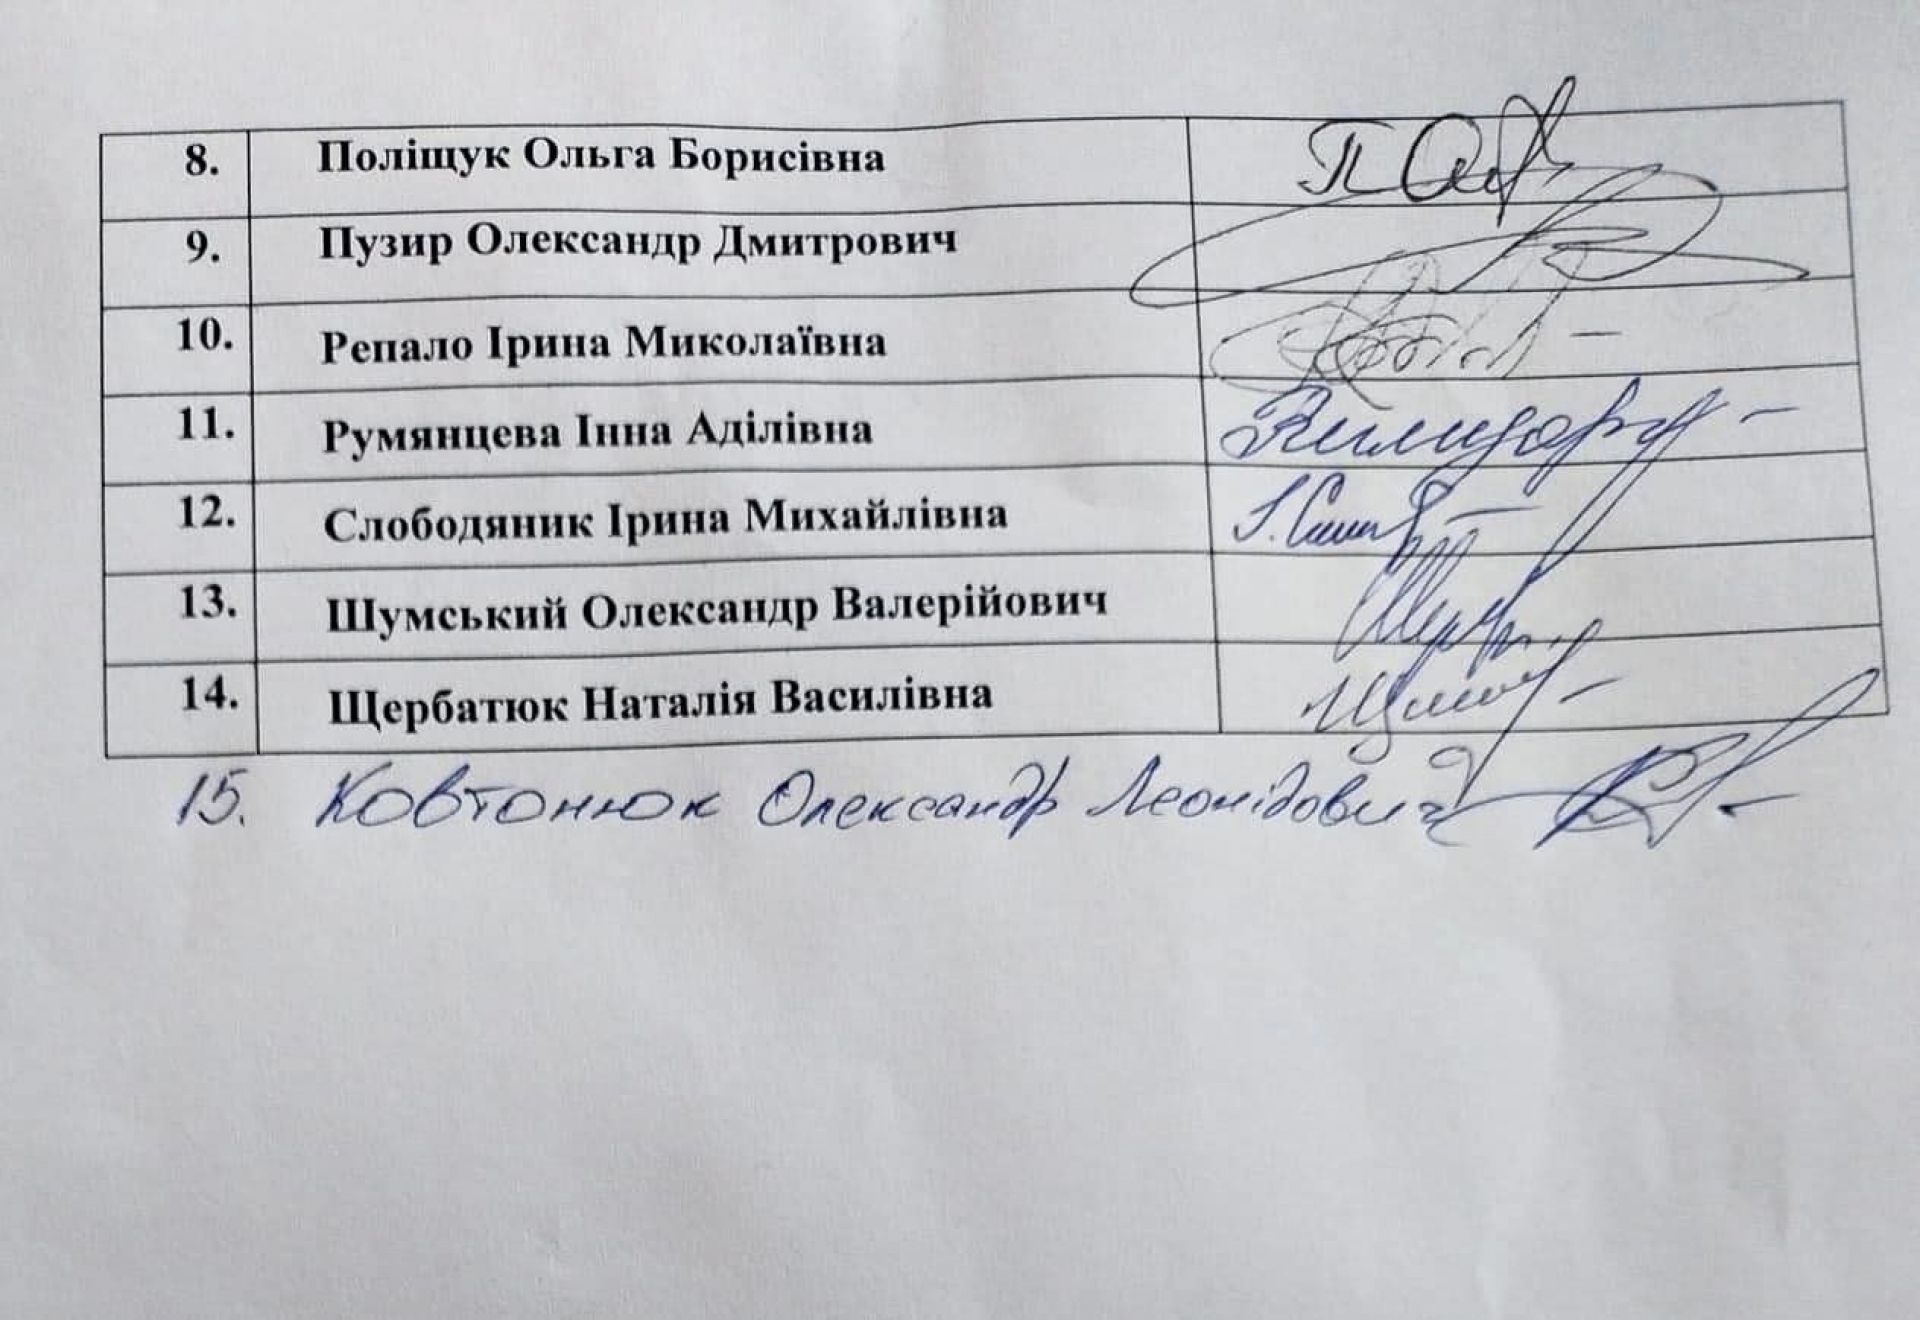 8. Поліщук Ольга Борисівна
9. Пузир Олександр Дмитрович
10. Репало Ірина Миколаївна
11. Румянцева Інна Аділівна
12. Слободяник Ірина Михайлівна
13. Шумський Олександр Валерійович
14. Щербатюк Наталія Василівна
15. Ковтонюк Олександр Леонідович